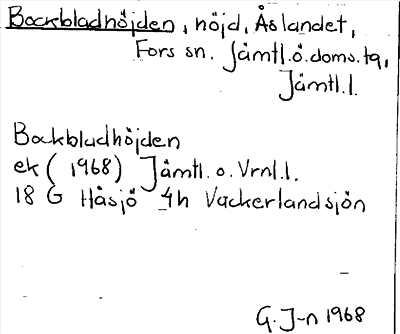 Bockbladhöjden, höjd, Åslandet,
Fors sn. Jämtl.ö.doms.tg,
Jämtl.l.
Bockbladhöjden
ek (1968) Jämtl. o. Vrnl.l.
18 G Håsjö 4h Vackerlandsjön
G. J-n 1968